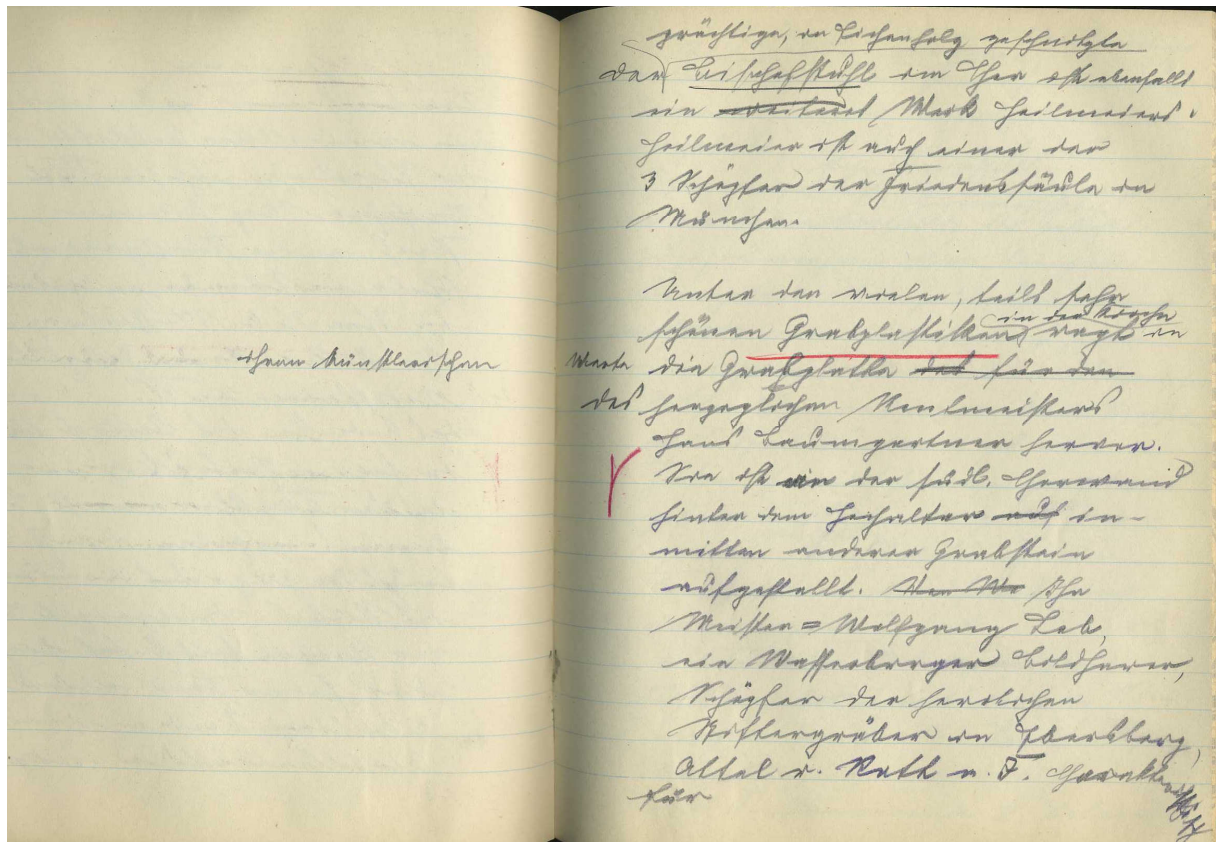 prächtige, in Eichenholz geschnitzte
Der Bischofstuhl im Chor ist ebenfalls
ein weiteres Werk Heilmeiers.
Heilmeier ist auch einer der
3 Schöpfer der Friedenssäule in
München.
Unter den vielen, teils sehr
in der Kirche
schönen Grabplastiken ragt in
ihrem künstlerischen Werte die Grabplatte des für den
des herzoglichen Rentmeisters
Hans Baumgartner hervor.
Sie ist in der südl. Chorwand
hinter dem Hochaltar auf in-
mitten anderer Grabstein
aufgestellt. Ihr
Meister = Wolfgang Leb,
ein Wasserburger Bildhauer,
Schöpfer der herrlichen
Stiftergräber in Ebersberg,
Attel u. Rott a. I. Charakte
für